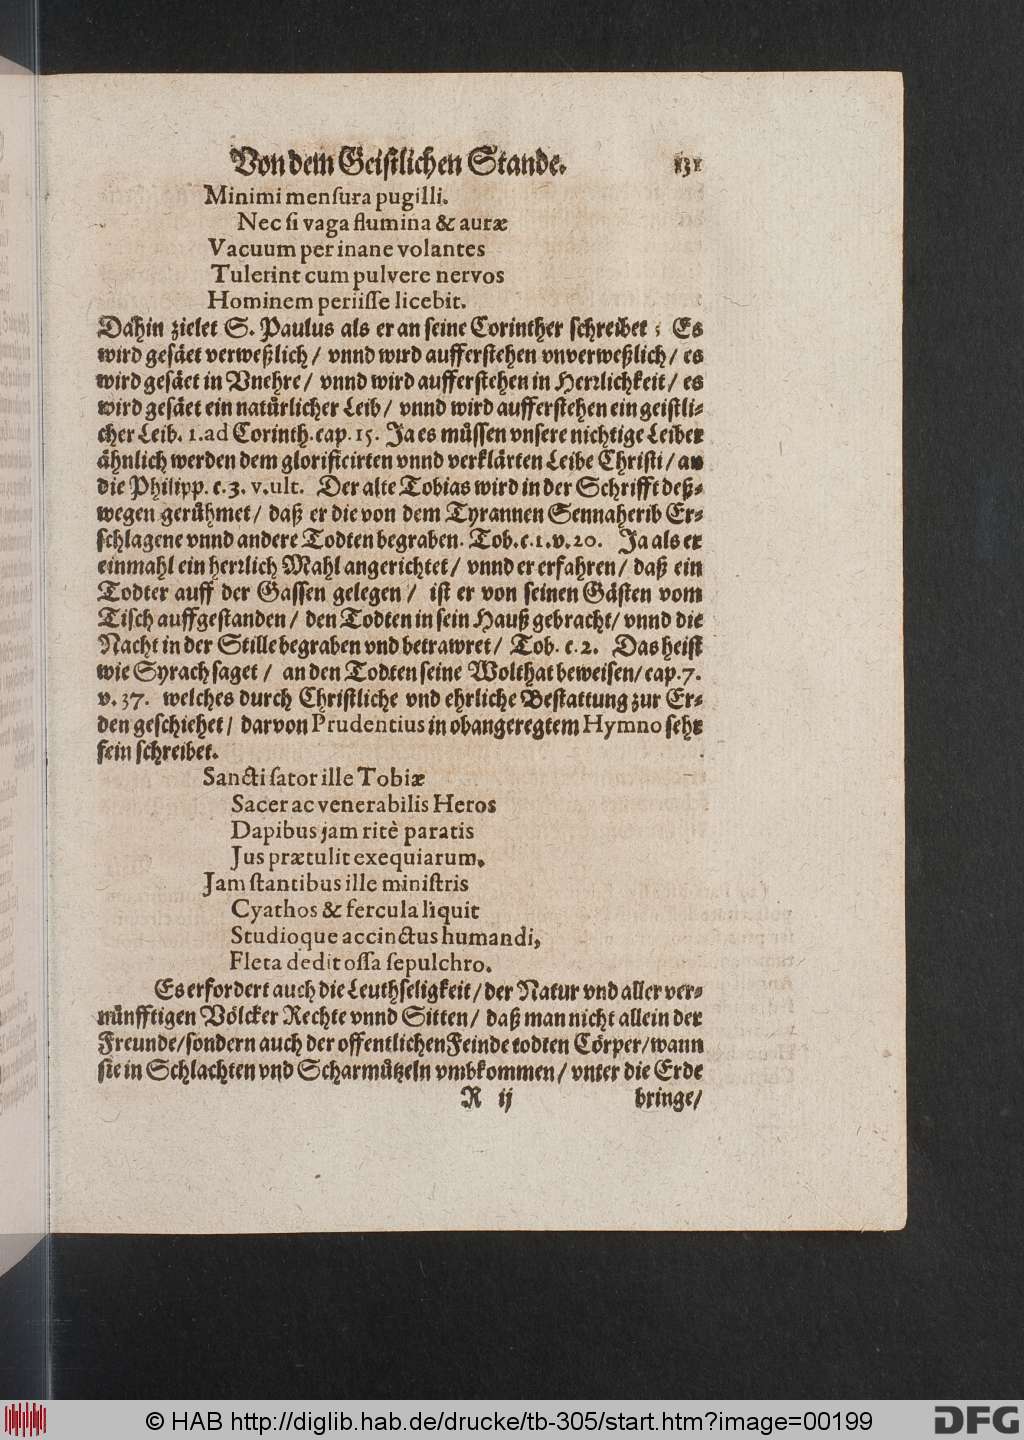 Von dem Geistlichen Stande. 131
Minimi menſura pugilli.
Nec ſi vaga flumina & auræ
Vacuum per inane volantes
Tulerint cum pulvere nervos
Hominem periiſſe licebit.
Dahin zielet S. Paulus als er an ſeine Corinther ſchreibet; Es
wird geſäet verweßlich / vnnd wird aufferſtehen vnverweßlich / es
wird geſäet in Vnehre / vnnd wird aufferſtehen in Herrlichkeit / es
wird geſäet ein natürlicher Leib / vnnd wird aufferſtehen ein geiſtli-
cher Leib. 1. ad Corinth. cap. 15. Ja es müſſen vnſere nichtige Leiber
ähnlich werden dem glorificirten vnnd verklärten Leibe Chriſti / an
die Philipp. c. 3. v. ult. Der alte Tobias wird in der Schrifft deß-
wegen gerühmet / daß er die von dem Tyrannen Sennaherib Er-
ſchlagene vnnd andere Todten begraben. Tob. c. 1. v. 20. Ja als er
einmahl ein herrlich Mahl angerichtet / vnnd er erfahren / daß ein
Todter auff der Gaſſen gelegen / iſt er von ſeinen Gäſten vom
Tiſch auffgeſtanden / den Todten in ſein Hauß gebracht / vnnd die
Nacht in der Stille begraben vnd betrawret / Tob. c. 2. Das heiſt
wie Syrach ſaget / an den Todten ſeine Wolthat beweiſen / cap. 7.
v. 37. welches durch Chriſtliche vnd ehrliche Beſtattung zur Er-
den geſchiehet / darvon Prudentius in obangeregtem Hymno ſehr
fein ſchreibet.
Sancti ſator ille Tobiæ
Sacer ac venerabilis Heros
Dapibus jam ritè paratis
Jus prætulit exequiarum.
Jam ſtantibus ille miniſtris
Cyathos & fercula liquit
Studioque accinctus humandi,
Fleta dedit oſſa ſepulchro.
Es erfordert auch die Leuthſeligkeit / der Natur vnd aller ver-
nünfftigen Völcker Rechte vnnd Sitten / daß man nicht allein der
Freunde / ſondern auch der offentlichen Feinde todten Cörper / wann
ſie in Schlachten vnd Scharmützeln vmbkommen / vnter die Erde
R ij bringe /
© HAB http://diglib.hab.de/drucke/tb-305/start.htm?image=00199
DFG